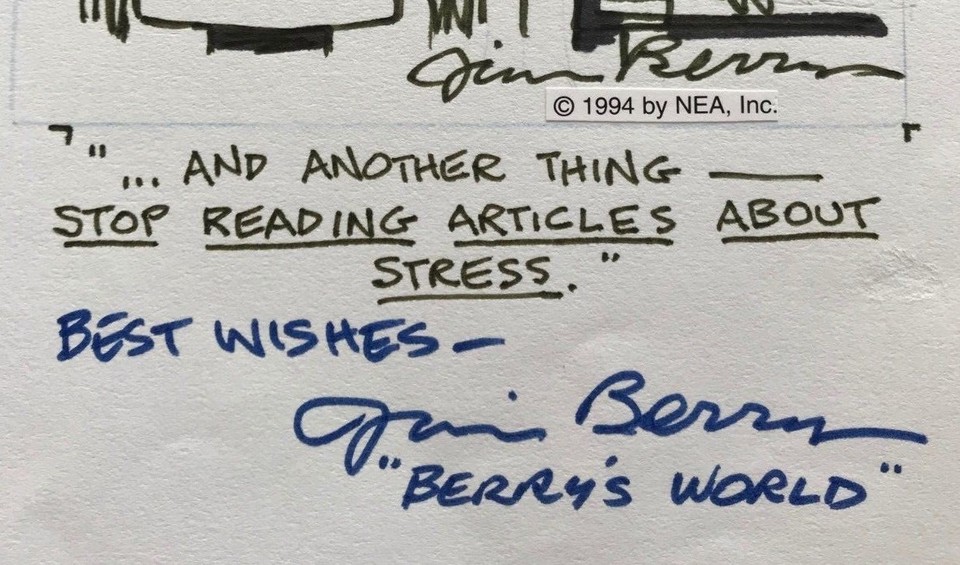 Jim Berry
© 1994 by NEA, Inc.
"... AND ANOTHER THING —
STOP READING ARTICLES ABOUT
STRESS."
BEST WISHES —
Jim Berry
"BERRY'S WORLD"